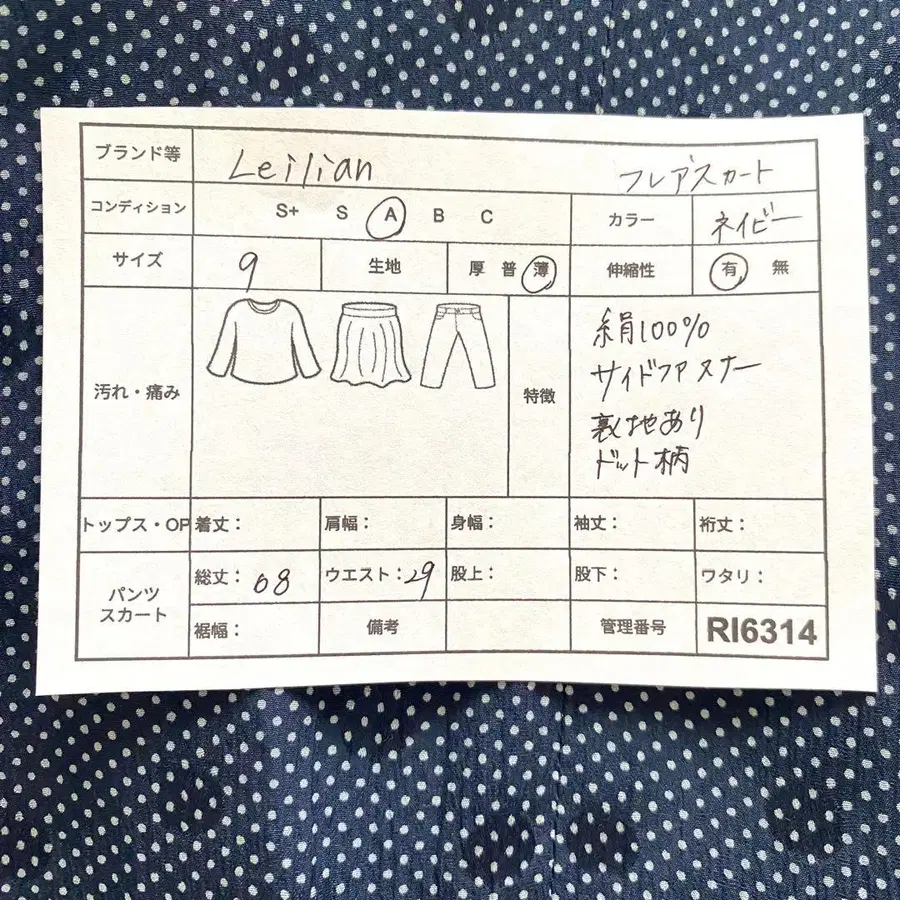 ブランド等 Leilian フレアスカート
コンディション S+ S A B C カラー ネイビー
サイズ 9 生地 厚 普 薄 伸縮性 有 無
汚れ・痛み 特徴
絹100%
サイドファスナー
裏地あり
ドット柄
トップス・OP 着丈： 肩幅： 身幅： 袖丈： 裄丈：
パンツ
スカート
総丈：68 ウエスト：29 股上： 股下： ワタリ：
裾幅： 備考 管理番号 RI6314